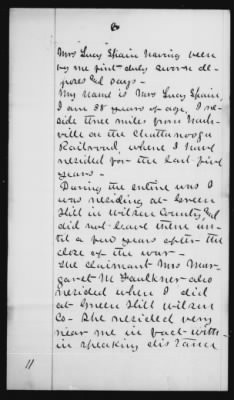 6
Mrs Lucy Spain having been
by me first duly sworn de-
poses and says -
My name is Mrs Lucy Spain,
I am 38 years of age, I re-
side three miles from Nash-
ville on the Chattanooga
Railroad, where I have
resided for the last five
years -
During the entire war I
was residing at Green
Hill in Wilson County, and
did not leave there un-
til a few years after the
close of the war -
The claimant Mrs Mar-
garet M Faulkner also
resided when I did
at Green Hill Wilson
Co - She resided very
near me in fact with-
in speaking distance
11